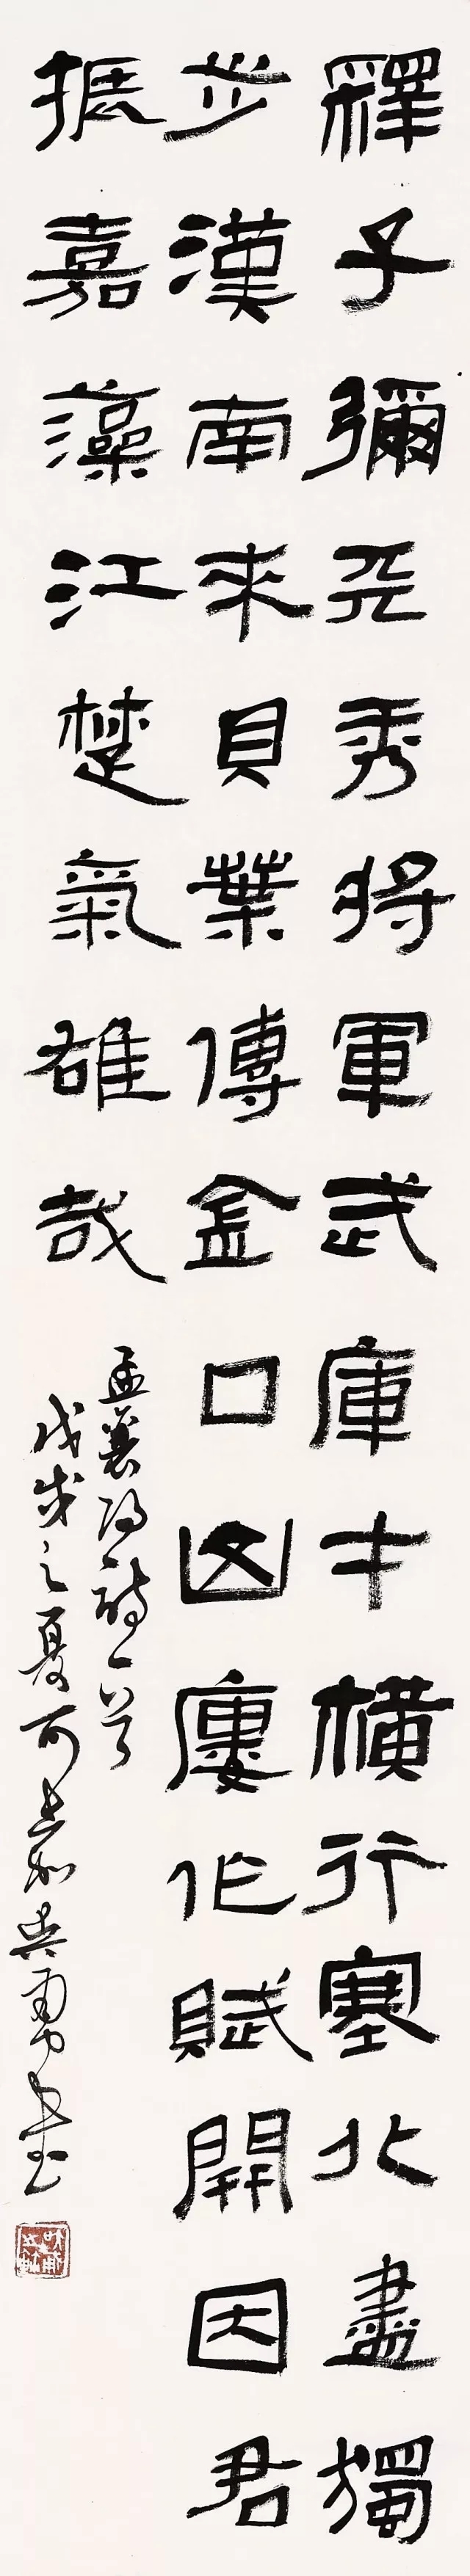 釋子彌天秀將軍武庫才橫行塞北盡獨
步漢南來貝葉傳金口山廔作賦開因君
振嘉藻江楚氣雄哉
孟襄陽詩一首
戊戌之夏可嘉吳勇書